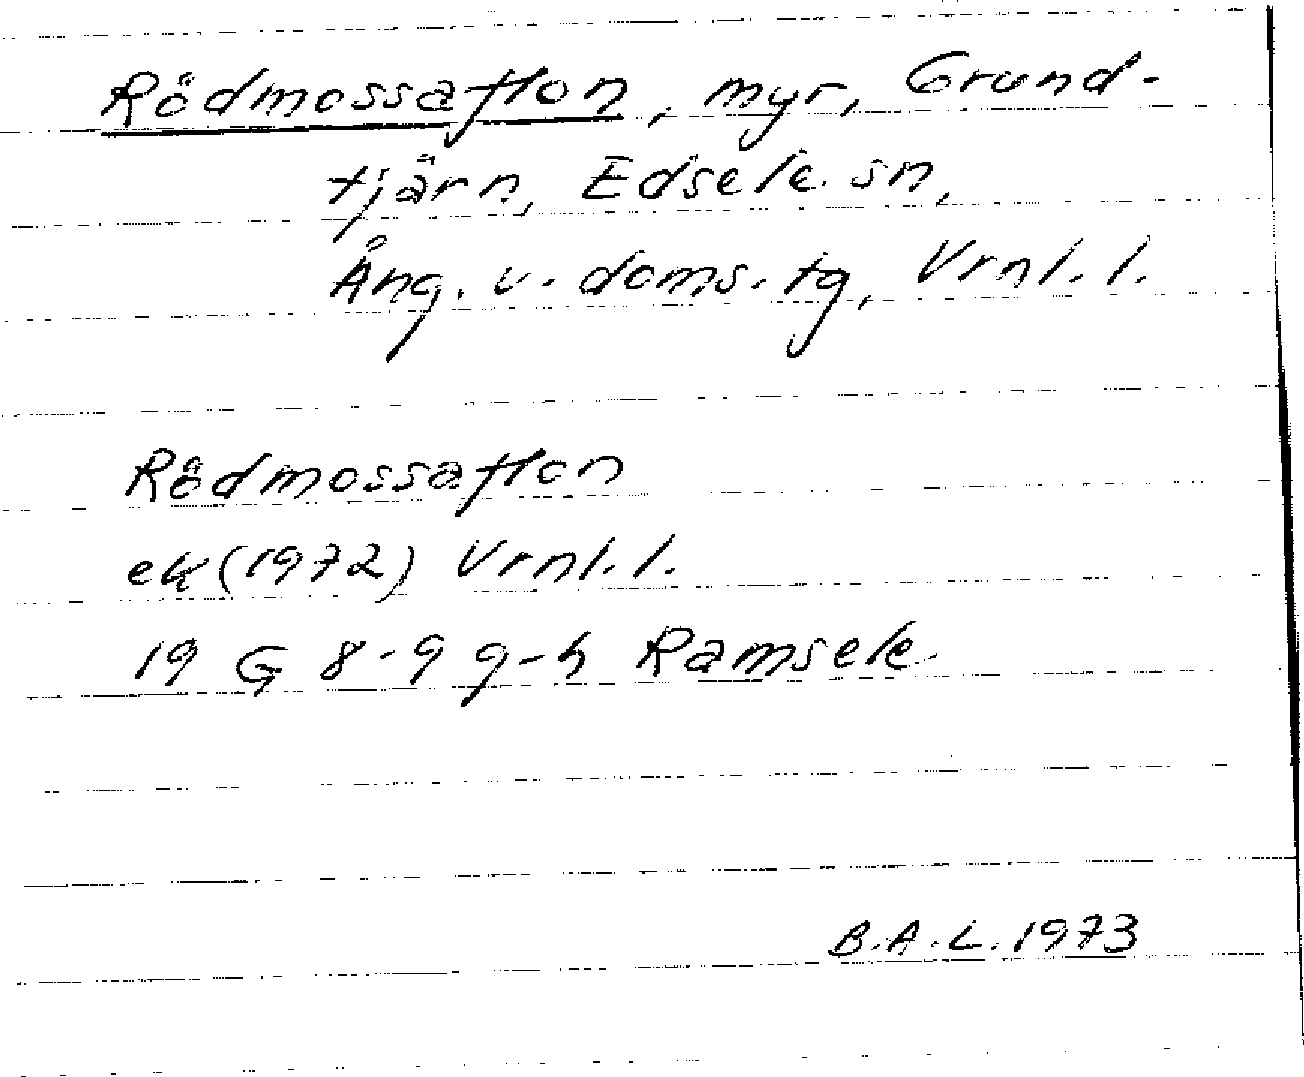 Rödmossaflon, myr, Grund-
tjärn, Edsele sn,
Ång. v. doms. tg, Vrnl. l.
Rödmossaflon
ek (1972) Vrnl. l.
19 G 8-9 g-h Ramsele
B.A.L. 1973